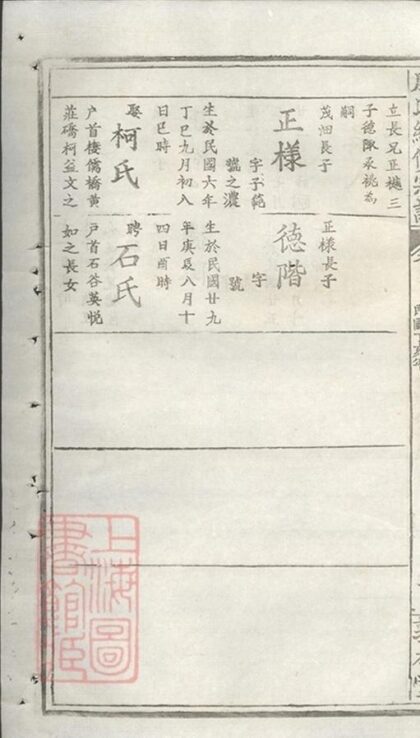 立長兄正樾三
子德陬承祧為
嗣
茂沺長子
正樣
字子範
號之濃
生於民國六年
丁巳九月初八
日巳時
娶
柯氏
户首棲儒橋黄
莊礄柯益文之
正樣長子
德階
字
號
生於民國廿九
年庚辰八月十
四日酉時
聘
石氏
户首石谷英悦
如之長女
上海圖
書館